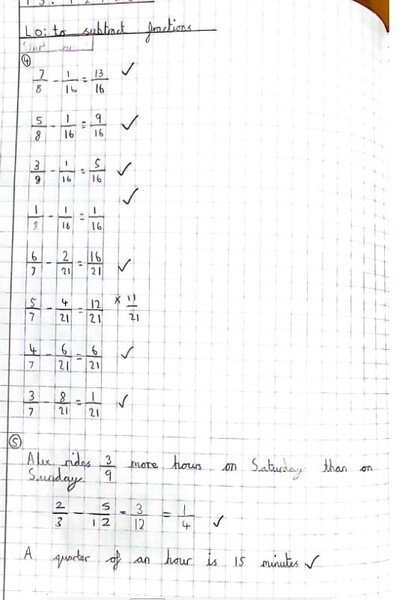 LO: to subtract fractions
④
7/8 - 1/16 = 13/16 ✓
5/8 - 1/16 = 9/16 ✓
3/8 - 1/16 = 5/16 ✓
1/8 - 1/16 = 1/16 ✓
6/7 - 2/21 = 16/21 ✓
5/7 - 4/21 = 12/21 × 11/21
4/7 - 6/21 = 6/21 ✓
3/7 - 8/21 = 1/21 ✓
⑤
Alex rides 3/9 more hours on Saturday than on
Sunday
2/3 - 5/12 = 3/12 = 1/4 ✓
A quarter of an hour is 15 minutes ✓